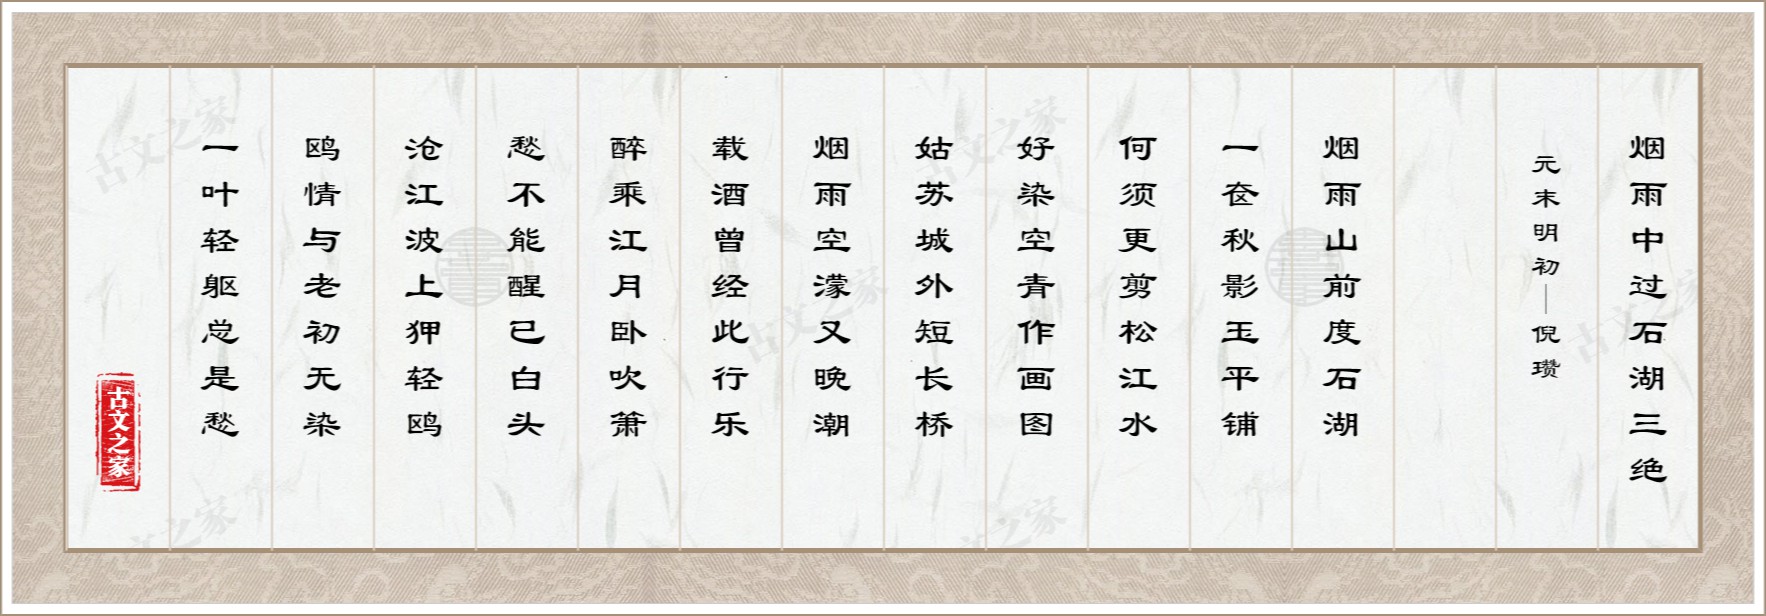 烟雨中过石湖三绝
元末明初—倪瓒
烟雨山前度石湖
一奁秋影玉平铺
何须更剪松江水
好染空青作画图
姑苏城外短长桥
烟雨空濛又晚潮
载酒曾经此行乐
醉乘江月卧吹箫
愁不能醒已白头
沧江波上狎轻鸥
鸥情与老初无染
一叶轻躯总是愁
古文之家